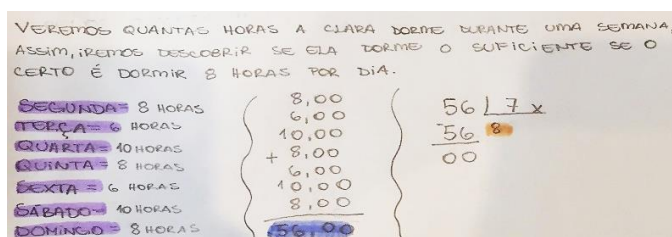 VEREMOS QUANTAS HORAS A CLARA DORME DURANTE UMA SEMANA,
ASSIM, IREMOS DESCOBRIR SE ELA DORME O SUFICIENTE SE O
CERTO É DORMIR 8 HORAS POR DIA.
SEGUNDA= 8 HORAS
TERÇA= 6 HORAS
QUARTA= 10 HORAS
QUINTA= 8 HORAS
SEXTA = 6 HORAS
SÁBADO- 10 HORAS
DOMINGO= 8 HORAS
8,00
6,00
10,00
+ 8,00
6,00
10,00
8,00
56,00
56 7 x
56 8
00